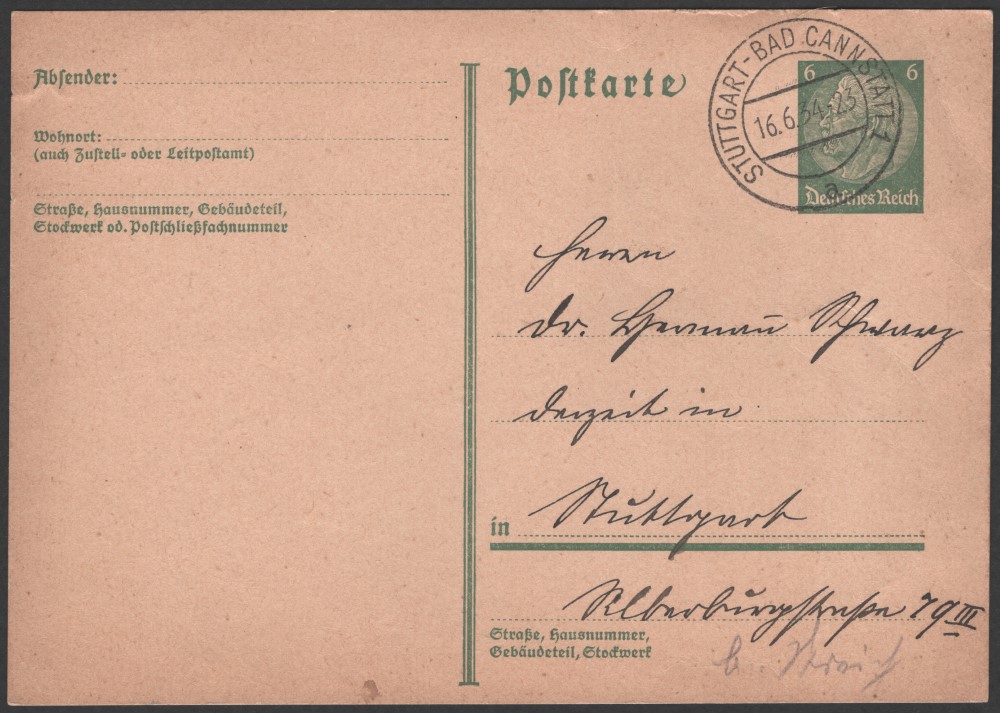 Absender:
Wohnort:
(auch Zustell- oder Leitpostamt)
Straße, Hausnummer, Gebäudeteil,
Stockwerk od. Postschließfachnummer
Postkarte
STUTTGART-BAD CANNSTATT 1
16.6.34.-23
a
6 6
Deutsches Reich
Herrn
Dr. Hermann Schwarz
derzeit in
in Stuttgart
Silberburgstraße 79 III
Straße, Hausnummer,
Gebäudeteil, Stockwerk
b.